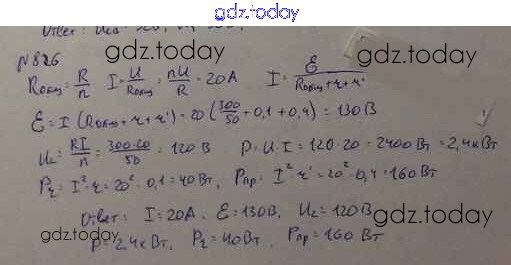 gdz.today
Ответ:
№826 gdz.today gdz.today
Rобщ = R/n I = U/Rобщ = nU/R = 20A I = ℰ/(Rобщ+r+r')
ℰ = I (Rобщ + r + r') = 20 (300/50 + 0,1 + 0,4) = 130 В
U₂ = RI/n = 300·20/50 = 120 В P = U·I = 120·20 = 2400 Вт = 2,4 кВт
P₂ = I²·r = 20²·0,1 = 40 Вт, Pпр = I²·r' = 20²·0,4 = 160 Вт
Ответ: I = 20А. ℰ = 130В, U₂ = 120 В
gdz.today gdz.today
P = 2,4 кВт, P₂ = 40Вт, Pпр = 160 Вт